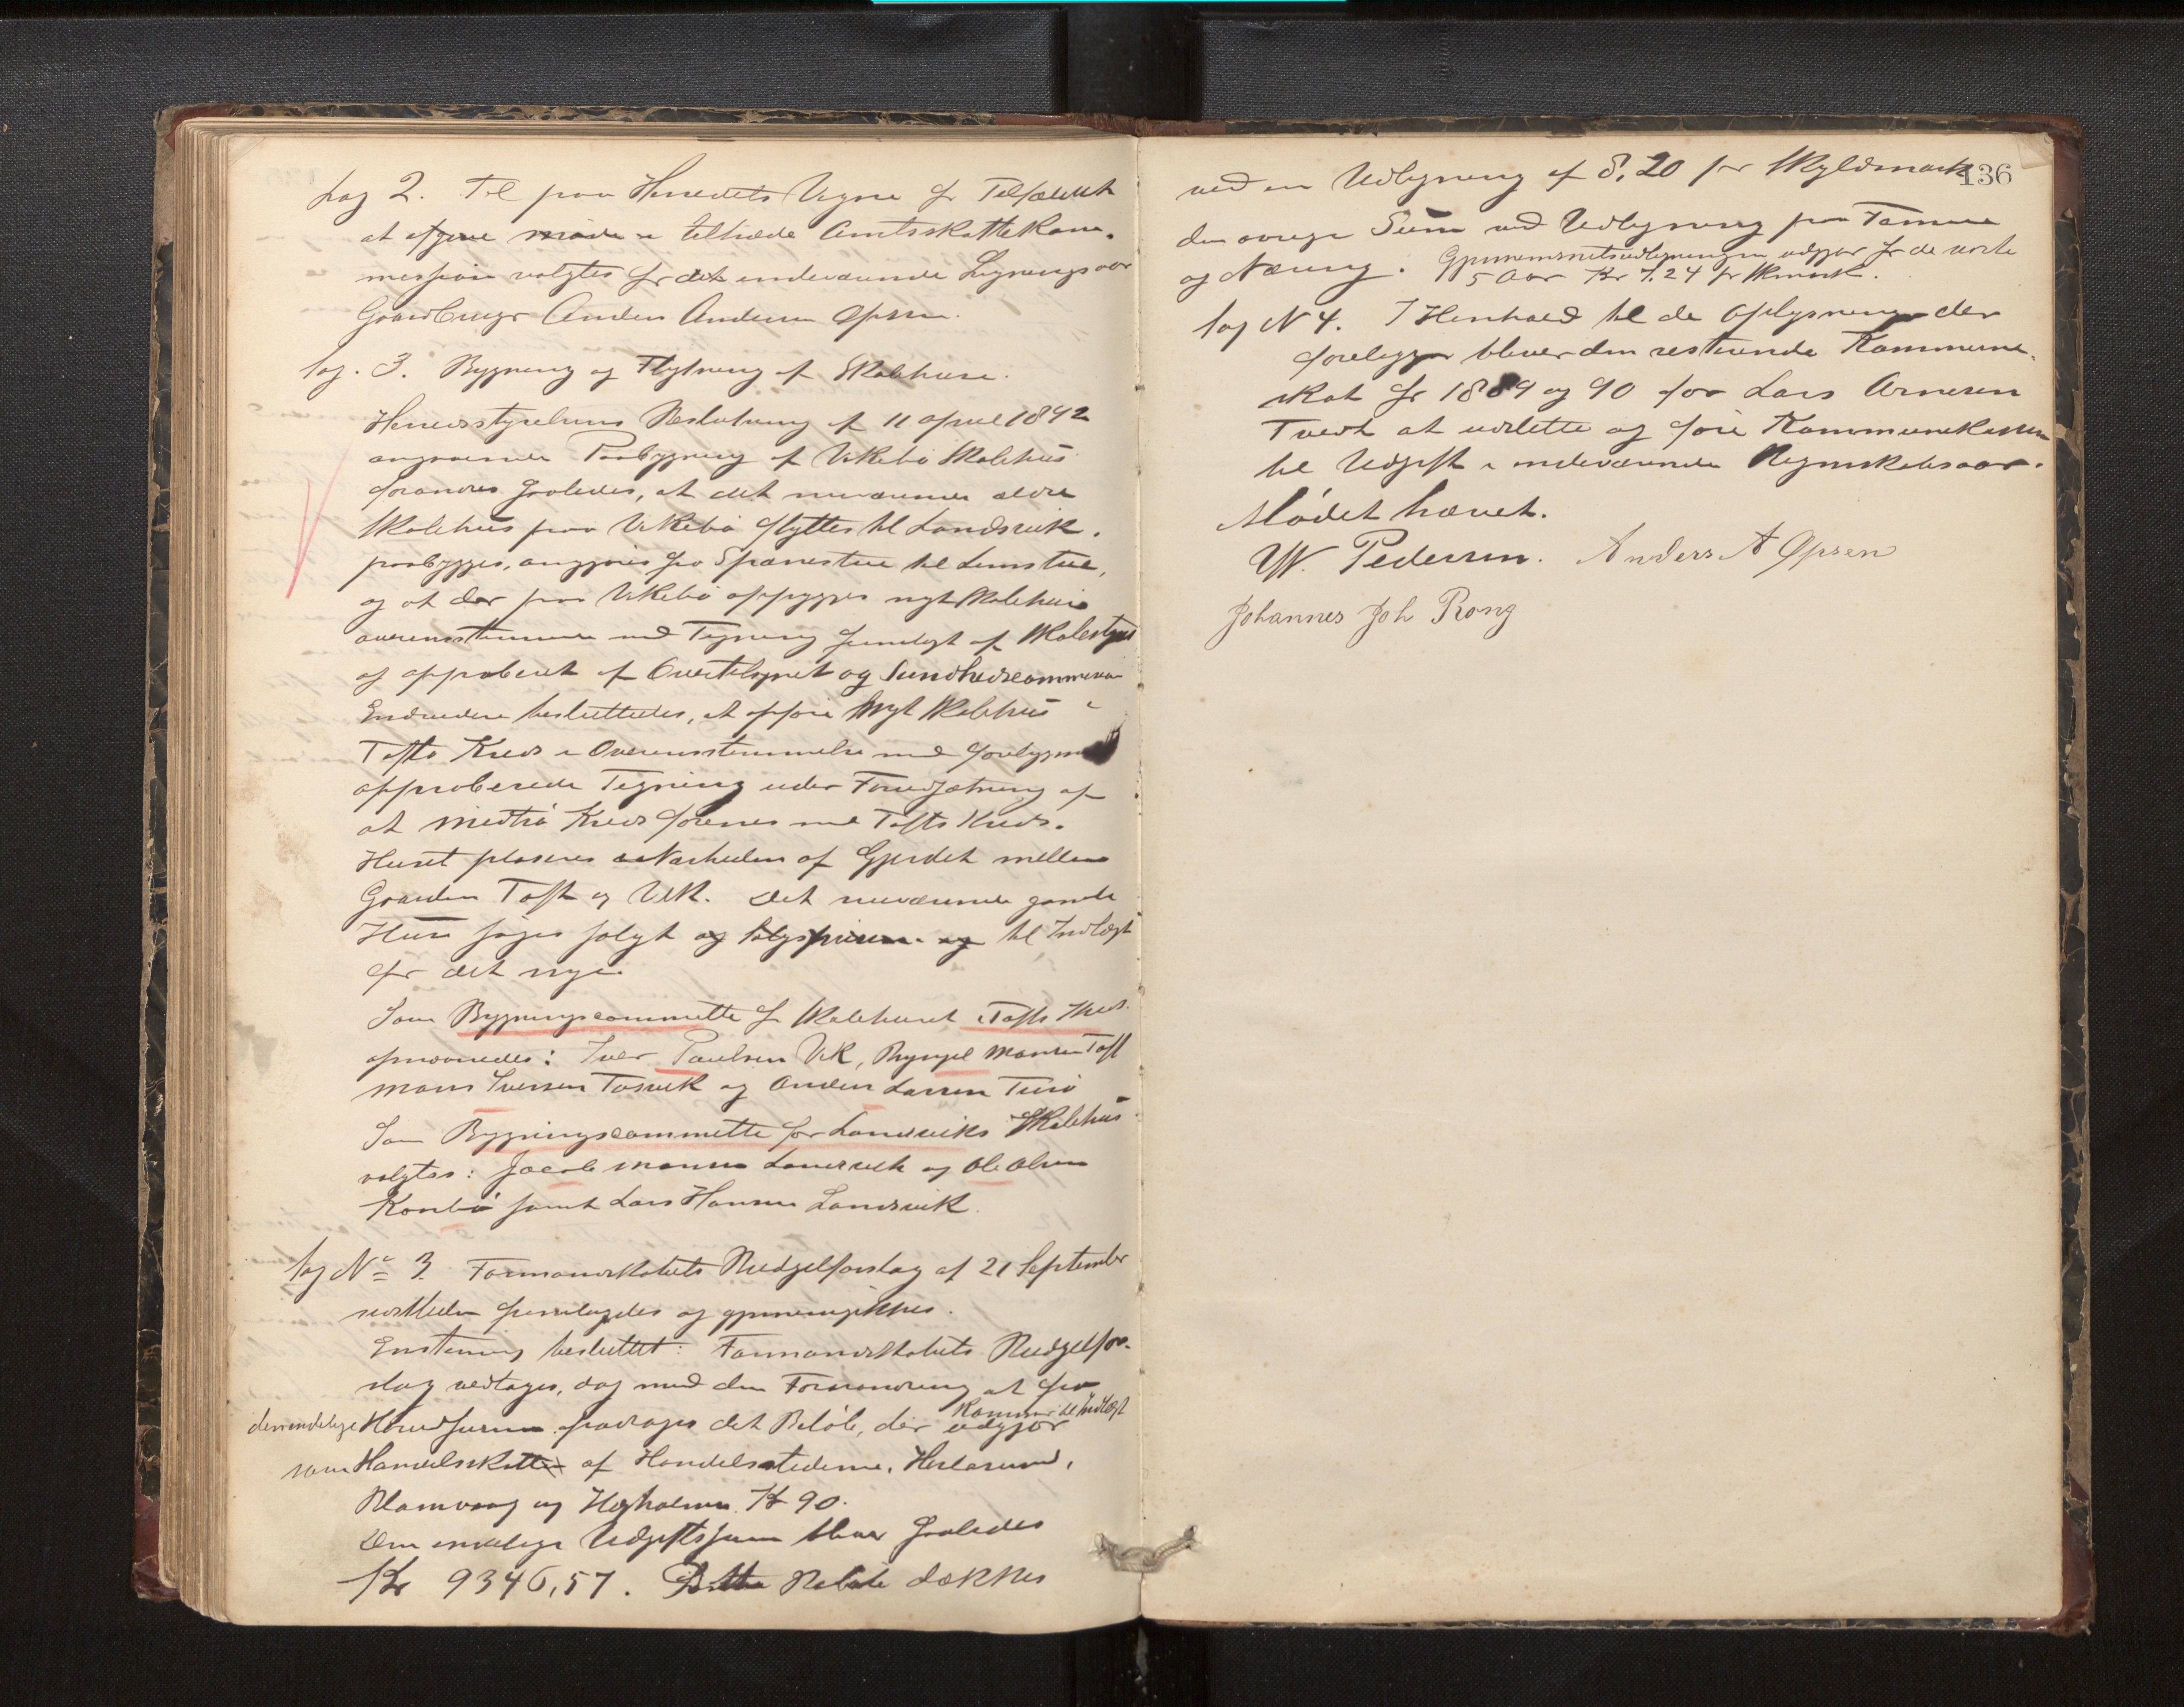 Sag 2. Til paa Herredets Vegne for Tilfældet
at afgive møde i tiltræde Amtsskattekom-
mission valgtes for det indeværende Ligningsaar
Gaardbruger Anders Andersen Opsen.
Sag. 3. Bygning og Flytning af Skolehuse.
Herredsstyrelsens Beslutning af 11 april 1892
angaaende Paabygning af Vikebø Skolehus
forandres saaledes, at det nuværende ældre
Skolehus paa Vikebø flyttes til Landsvik.
paabygges, angjøres fra Spærrestue til Limstue,
og at der paa Vikebø opbygges nyt Skolehus
overensstemmende med Tegning fremlagt af Skolestyret
og approberet af Overtilsynet og Sundhedscommission
Endvidere besluttedes, at opføre Nyt Skolehus i
Tofts Kreds i Overensstemmelse med foreliggende
approberede Tegning under Forudsætning af
at Midtø Kreds forenes med Tofts Kreds.
Huset plaseres i Nærheden af Gjerdet mellem
Gaarden Toft og Vik. Det nuværende gamle
Hus søges solgt og til Indtægt
for det nye.
Som Bygningscommitte for Skolehuset i Tofts Kreds
opnævnedes: Iver Paulsen Vik, Brynjel Monsen Toft
Mons Iversen Torsvik og Anders Larsen Turø
Som Bygningscommitte for Landsviks Skolehus
valgtes: Jacob Monsen Landsvik og Ole Olsen
Konbø samt Lars Hansen Landsvik.
Sag No 3. Formandskabets Budgetforslag af 21 September
sidstleden foredroges og gjennemgikkes.
Enstemmig besluttet: Formandskabets Budgetfor-
slag vedtages, dog med den Forandring at fra
den endelige Hovedsum fradrages det Beløb, der udgjør Kommer til Indtægt
som Handelsskatter af Handelsstederne, Herløsund,
Blomvaag og Hegholmen Kr 90.
Den endelige Udgiftssum bliver saaledes
Kr 9346,57. Dette Beløb dækkes
136
ved en Udligning af 8,20 pr Skyldmark
den øvrige Sum ved Udligning paa Formue
og Næring. Gjennemsnitsudligningen udgjør for de sidste
5 Aar Kr 7.24 pr Skmark.
Sag N 4. I Henhold til de Oplysninger der
foreligger bliver den resterende Kommune-
skat for 1889 og 90 for Lars Arnesen
Tvedt at udslette og føre Kommunekassen
til Udgift i indeværende Regnskabsaar.
Mødet hævet.
W. Pedersen. Anders A Opsen
Johannes Joh Rong